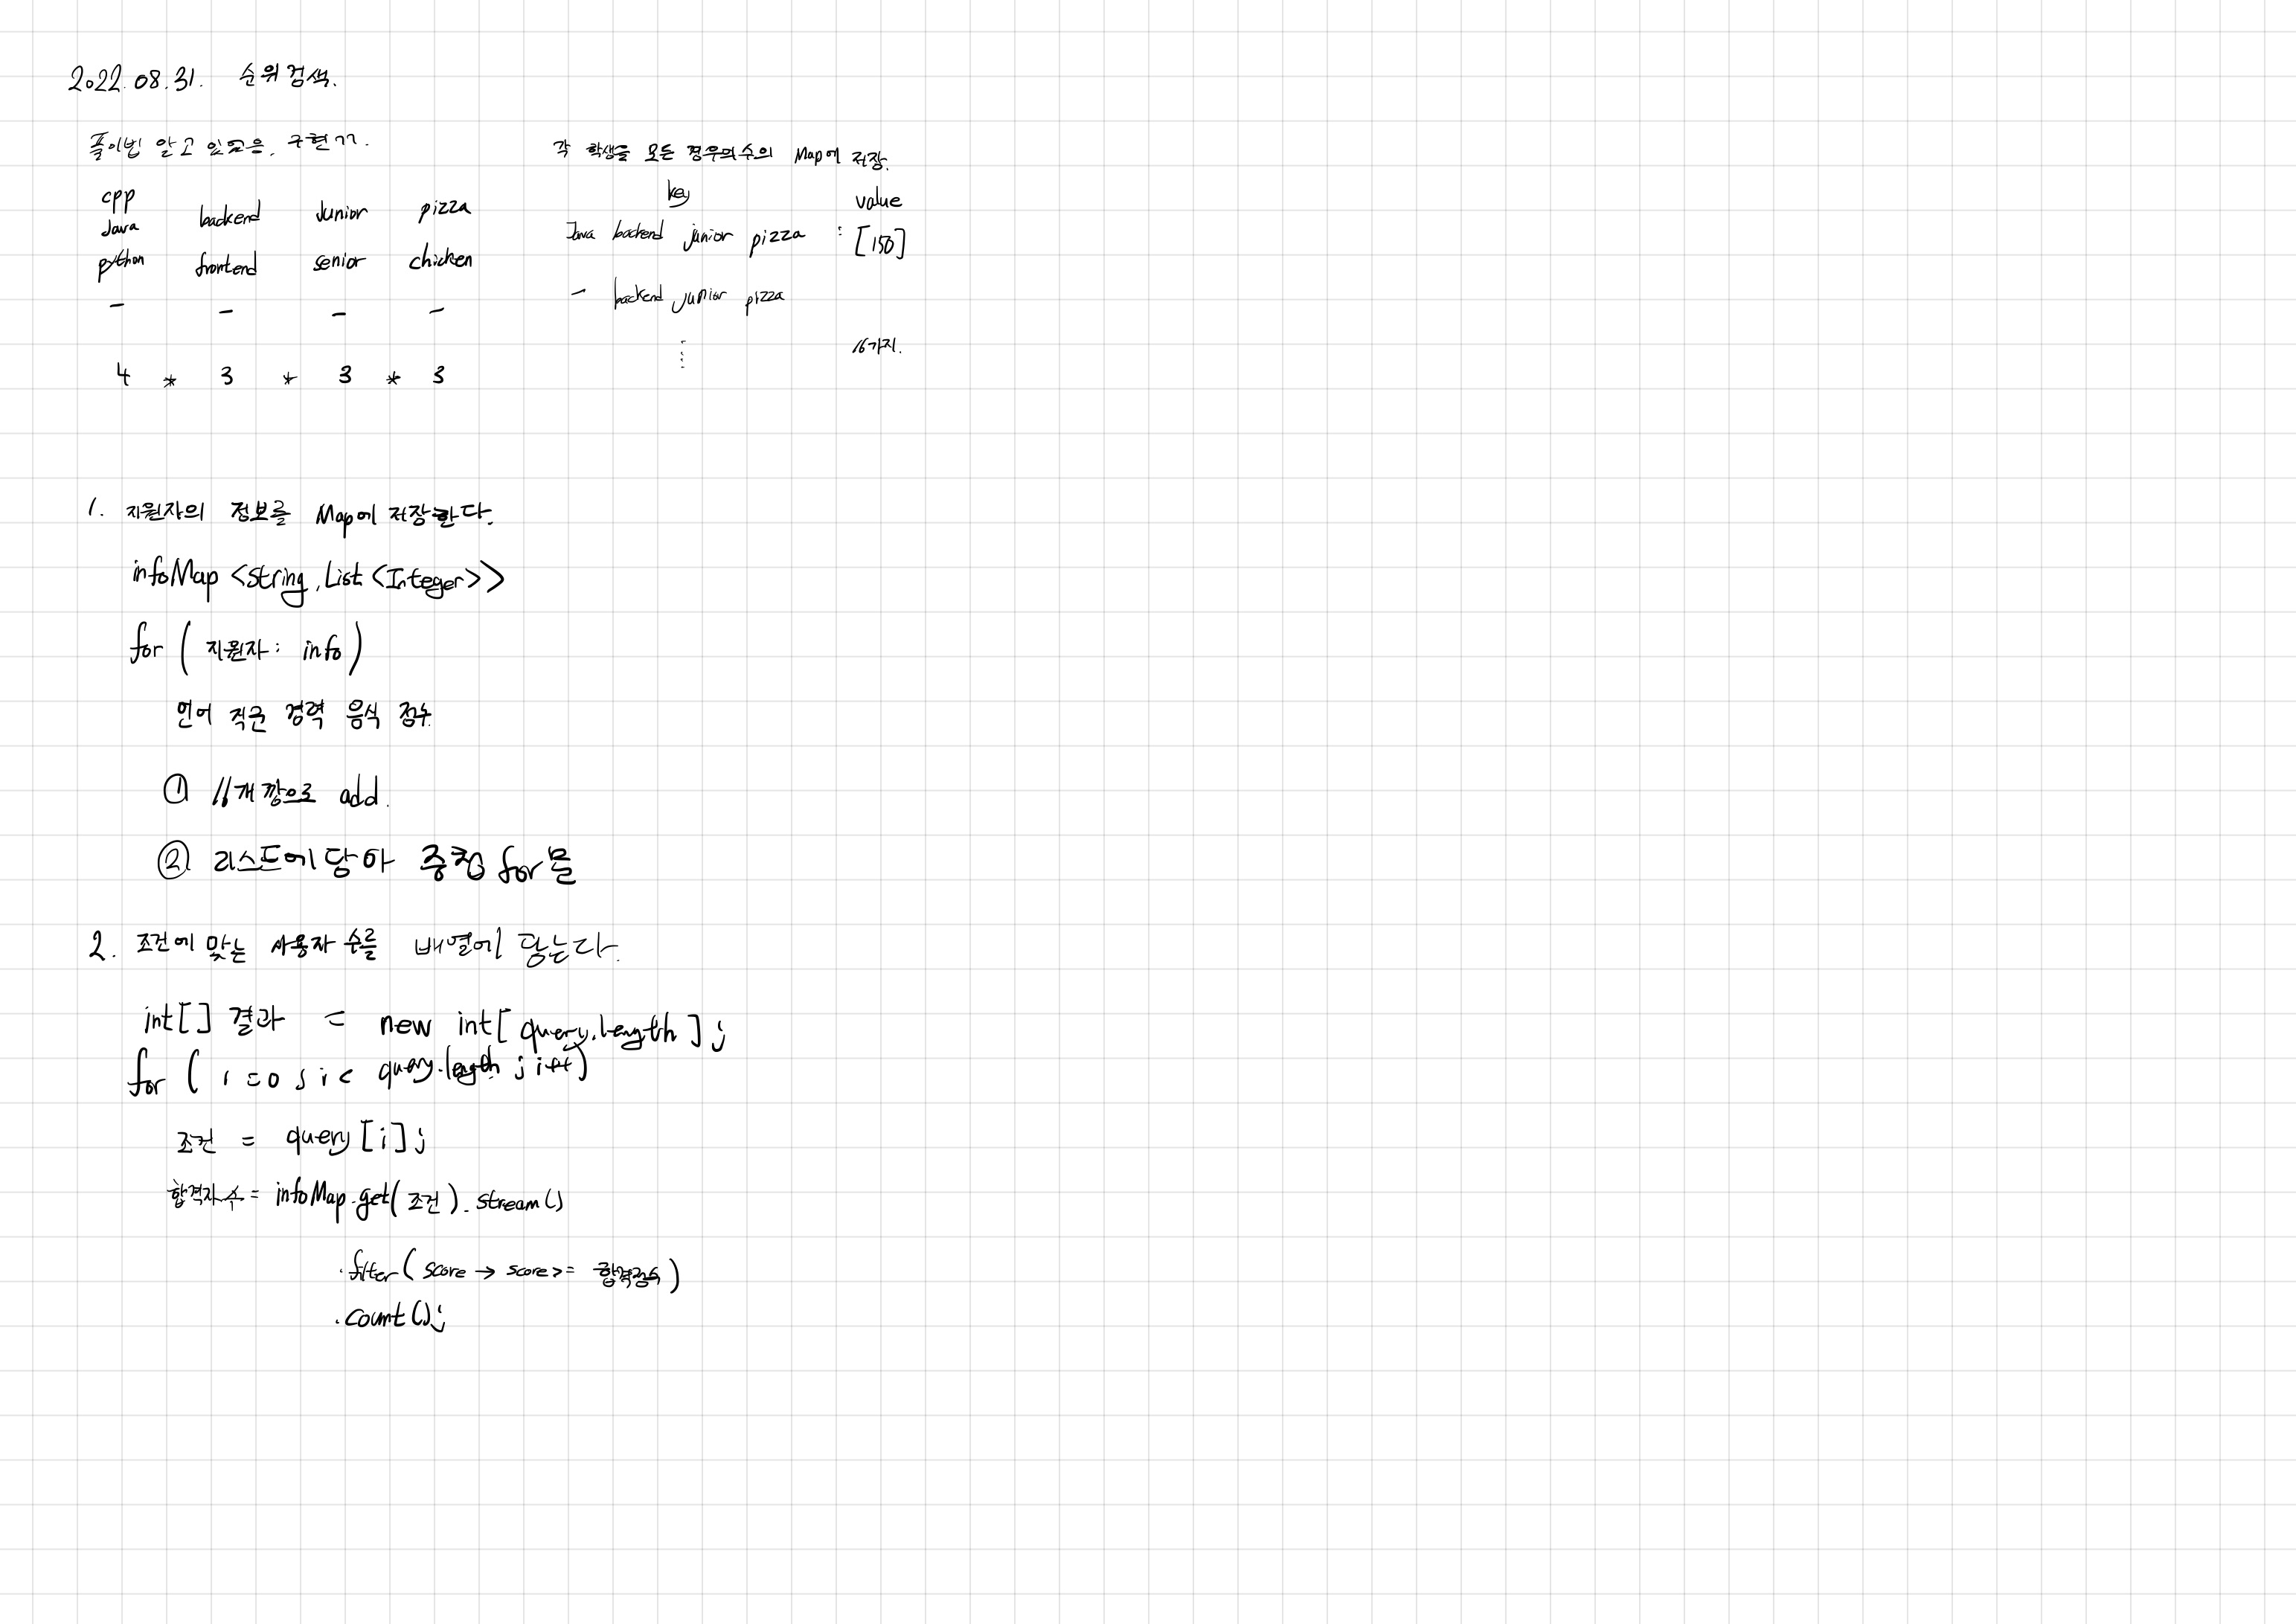 2022.08.31. 순위검색.
풀이법 알고 있었음. 구현 ㄱㄱ.
cpp
Java backend Junior pizza
python frontend senior chicken
- - - -
4 * 3 * 3 * 3
각 학생을 모든 경우의수의 Map에 저장.
key value
Java backend junior pizza : [150]
- backend junior pizza
⋮ 16가지.
1. 지원자의 정보를 Map에 저장한다.
infoMap <String, List <Integer>>
for ( 지원자 : info )
언어 직군 경력 음식 점수
① 16개 깡으로 add.
② 리스트에 담아 중첩 for문
2. 조건에 맞는 사용자 수를 배열에 담는다.
int[] 결과 = new int[ query.length ];
for ( i=0 ; i < query.length ; i++)
조건 = query [i];
합격자 수 = infoMap.get( 조건 ). stream()
.filter( score → score >= 합격점수 )
.count();